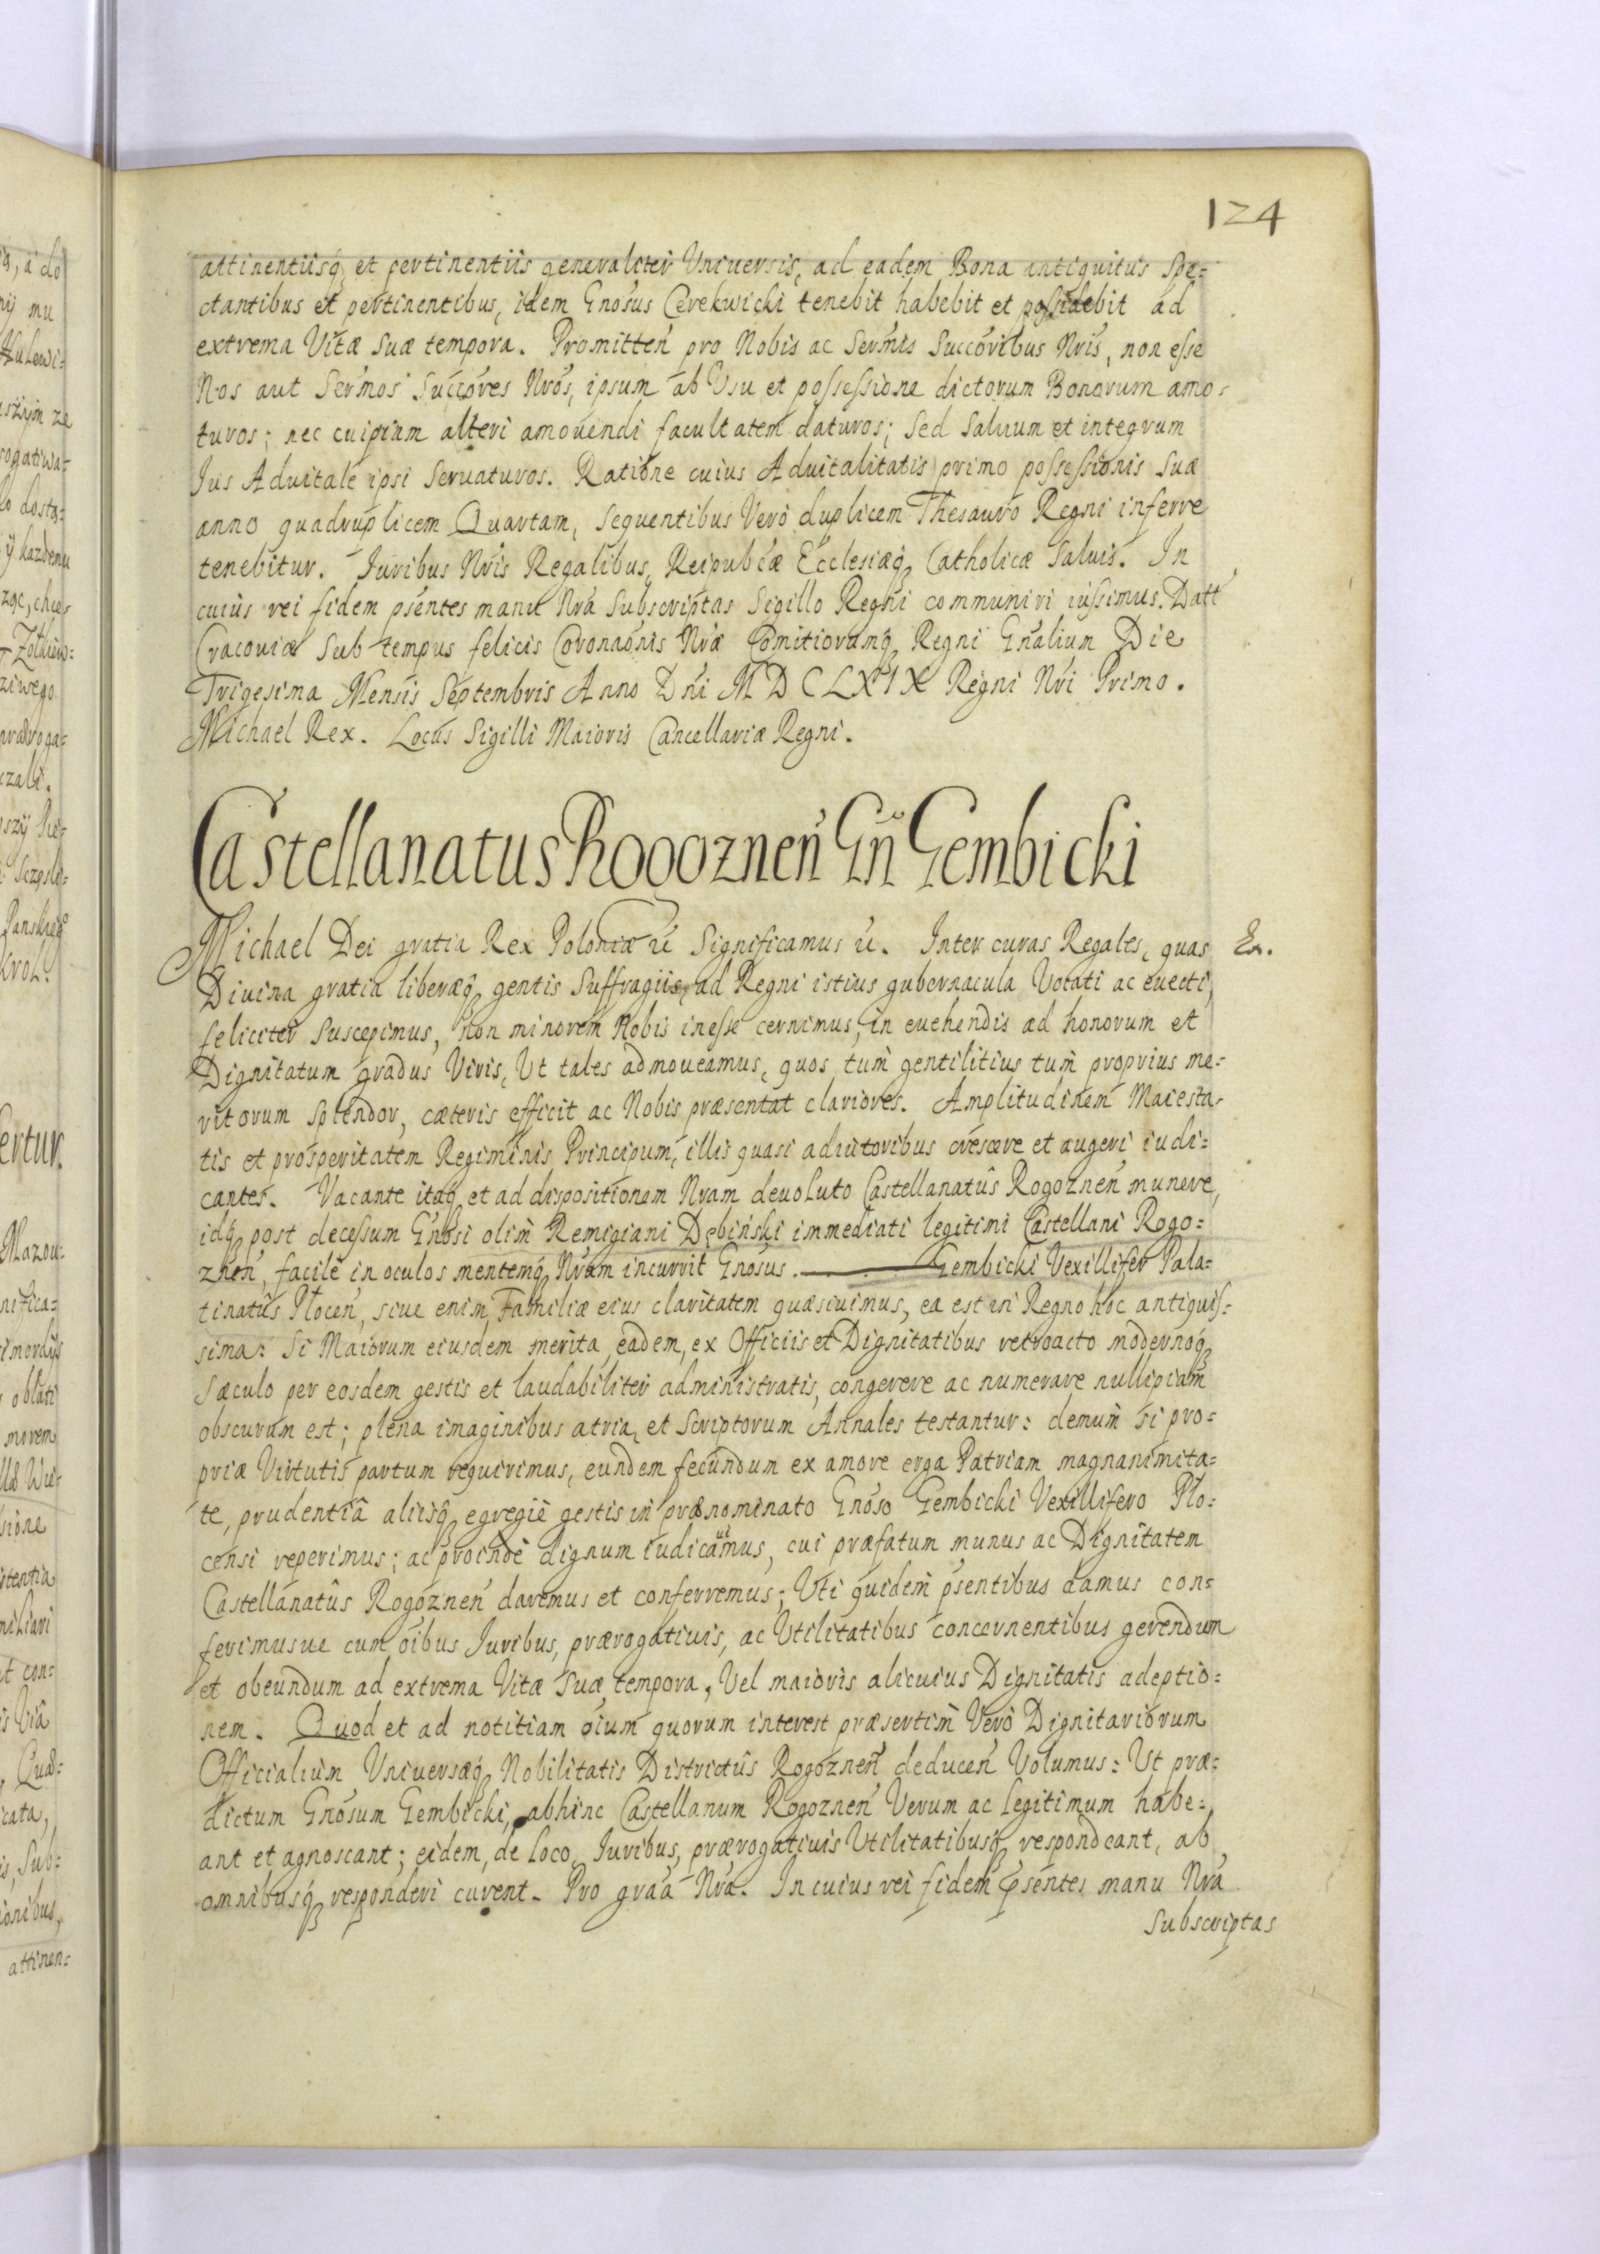 124
attinentiisq et pertinentiis generaliter Universis, ad eadem Bona antiquitus Spe=
ctantibus et pertinentibus, idem Gnosus Cerekwicki tenebit habebit et possidebit ad
extrema Vitæ suæ tempora. Promitten pro Nobis ac Sermis Succoribus Nris, non esse
Nos aut Sermos Succores Nros, ipsum ab Usu et possessione dictorum Bonorum amo=
turos; nec cuipiam alteri amovendi facultatem daturos; Sed Saluum et integrum
Ius Aduitale ipsi Seruaturos. Ratione cuius Aduitalitatis primo possessionis Suæ
anno quadruplicem Quartam, sequentibus Verò duplicem Thesauro Regni inferre
tenebitur. Iuribus Nris Regalibus, Reipubcæ Ecclesiæq Catholicæ Saluis. In
cuius rei fidem psentes manu Nrâ Subscriptas Sigillo Regni communiri iussimus. Datt
Cracouiæ Sub tempus felicis Coronaonis Nræ Comitiorumq Regni Gnalium Die
Trigesima Mensis Septembris Anno Dni MDCLXIX Regni Nri Primo.
Michael Rex. Locus Sigilli Maioris Cancellariæ Regni.
Castellanatus Rogoznen Gn Gembicki
Michael Dei gratia Rex Poloniæ ü Significamus ü. Inter curas Regales, quas
Ex.
Diuina gratia liberæq gentis Suffragiis, ad Regni istius gubernacula Votati ac euecti,
feliciter Suscepimus, non minorem Nobis inesse cernimus, in euehendis ad honorum et
Dignitatum gradus Viris, Ut tales admoueamus, quos tum gentilitius tum proprius me=
ritorum Splendor, cæteris efficit ac Nobis præsentat clariores. Amplitudinem Maiesta=
tis et prosperitatem Regiminis Principum, illis quasi adiutoribus crescere et augeri iudi=
cantes. Vacante itaq et ad dispositionem Nram deuoluto Castellanatûs Rogoznen munere,
idq post decessum Gnosi olim Remigiani Dębiński immediati legitimi Castellani Rogo=
znen, facilè in oculos mentemq Nram incurrit Gnosus. ——— Gembicki Vexillifer Pala=
tinatûs Plocen, siue enim Familiæ eius claritatem quæsiuimus, ea est in Regno hoc antiquis=
sima: Si Maiorum eiusdem merita, eadem, ex Officiis et Dignitatibus retroacto modernoq
Sæculo per eosdem gestis et laudabiliter administratis, congerere ac numerare nullipiam
obscurum est; plena imaginibus atria, et Scriptorum Annales testantur: demum si pro=
priæ Virtutis partum requirimus, eundem fecundum ex amore erga Patriam magnanimita=
te, prudentiâ aliisq egregiè gestis in prænominato Gnoso Gembicki Vexillifero Plo=
censi reperimus; ac proinde dignum iudicauimus, cui præfatum munus ac Dignitatem
Castellanatûs Rogoznen daremus et conferremus; Uti quidem psentibus damus con=
ferimusue cum oibus Iuribus, prærogatiuis, ac Utilitatibus concernentibus gerendum
et obeundum ad extrema Vitæ Suæ tempora, Vel maioris alicuius Dignitatis adeptio=
nem. Quod et ad notitiam oium quorum interest præsertim Verò Dignitariorum
Officialium Universæq Nobilitatis Districtûs Rogoznen deducen Volumus: Ut præ=
dictum Gnosum Gembicki, abhinc Castellanum Rogoznen Verum ac legitimum habe=
ant et agnoscant; eidem, de loco, Iuribus, prærogatiuis Utilitatibusq respondeant, ab
omnibusq responderi curent. Pro graa Nra. In cuius rei fidem psentes manu Nra
Subscriptas